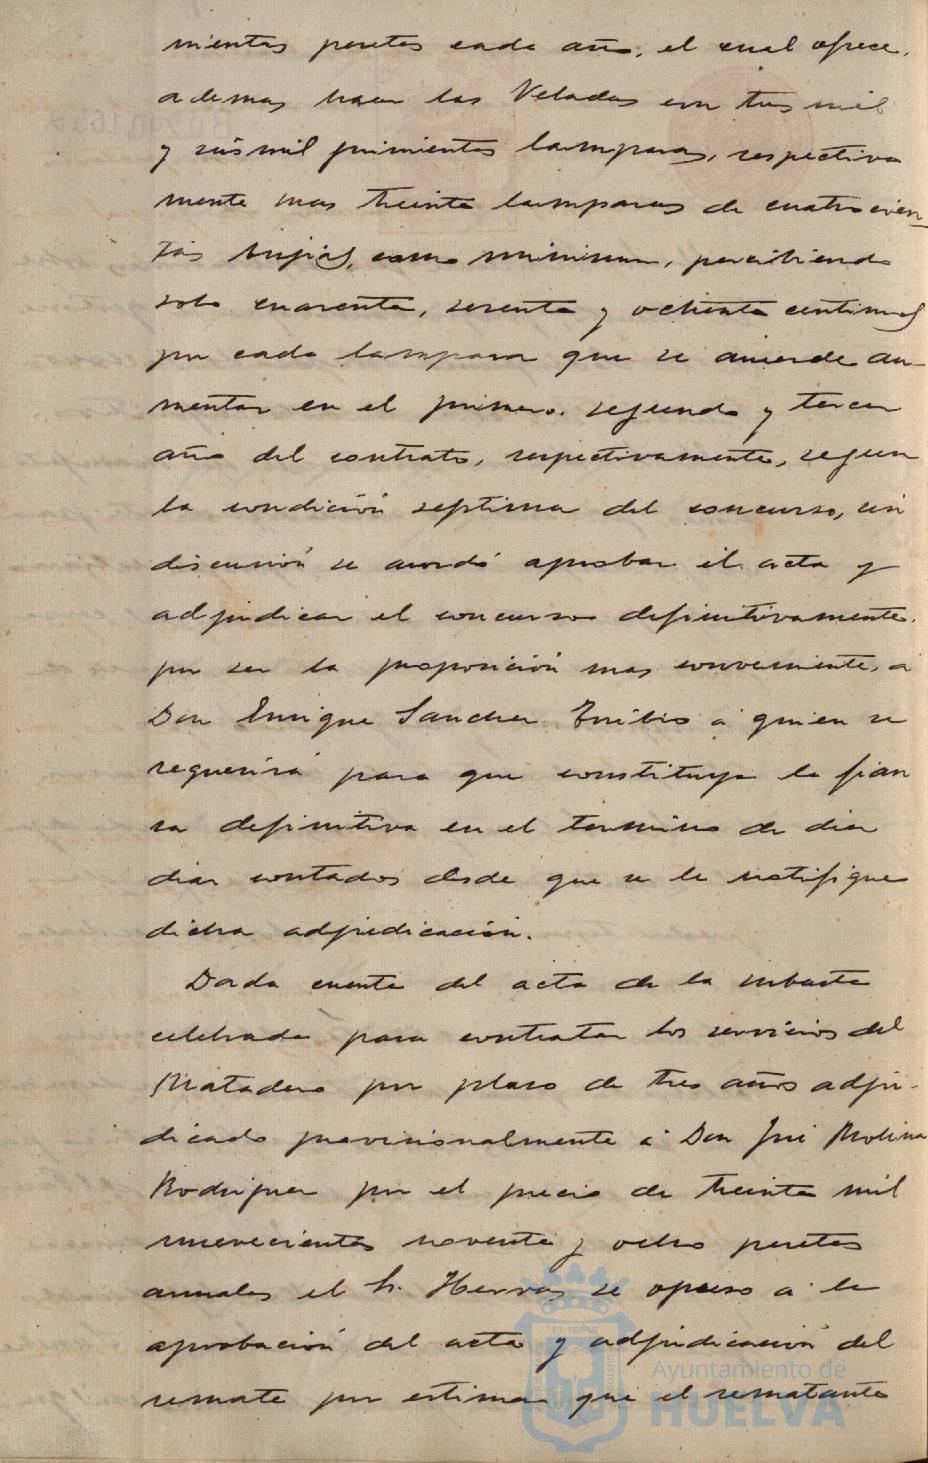 nientas pesetas cada año, el cual ofrece,
ademas hacer las Veladas con tres mil
y seis mil quinientas lamparas, respectiva
mente mas treinta lamparas de cuatrocien-
tas bujias, como minimum, percibiendo
solo cuarenta, sesenta y ochenta centimos
por cada lampara que se acuerde au-
mentar en el primero, segundo y tercer
año del contrato, respectivamente, segun
la condición septima del concurso, sin
discusión se acordó aprobar el acta y
adjudicar el concurso definitivamente,
por ser la proposición mas conveniente, a
Don Enrique Sanchez Toribio a quien se
requerirá para que constituya la fian
za definitiva en el termino de diez
dias contados desde que se le notifique
dicha adjudicación.
Dada cuenta del acta de la subasta
celebrada para contratar los servicios del
Matadero por plazo de tres años adju-
dicado provisionalmente á Don José Molina
Rodriguez por el precio de treinta mil
nuevecientas noventa y ocho pesetas
anuales el Sr. Hervas se opuso a la
aprobación del acta y adjudicación del
remate por estimar que el rematante
Ayuntamiento de
HUELVA